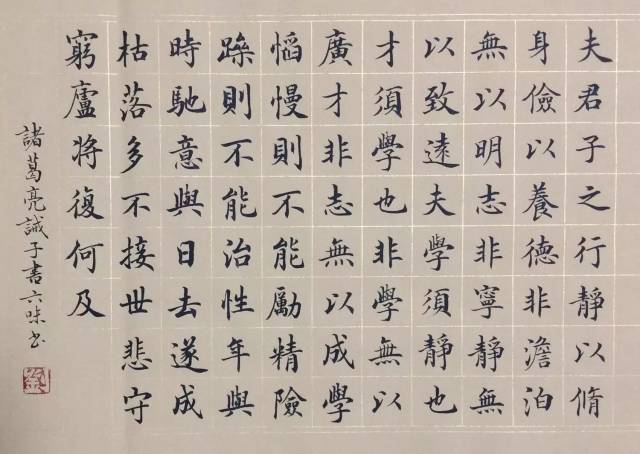 夫君子之行靜以脩
身儉以養德非澹泊
無以明志非寧靜無
以致遠夫學須靜也
才須學也非學無以
廣才非志無以成學
慆慢則不能勵精險
躁則不能治性年與
時馳意與日去遂成
枯落多不接世悲守
窮廬將復何及
諸葛亮誡子書六味书